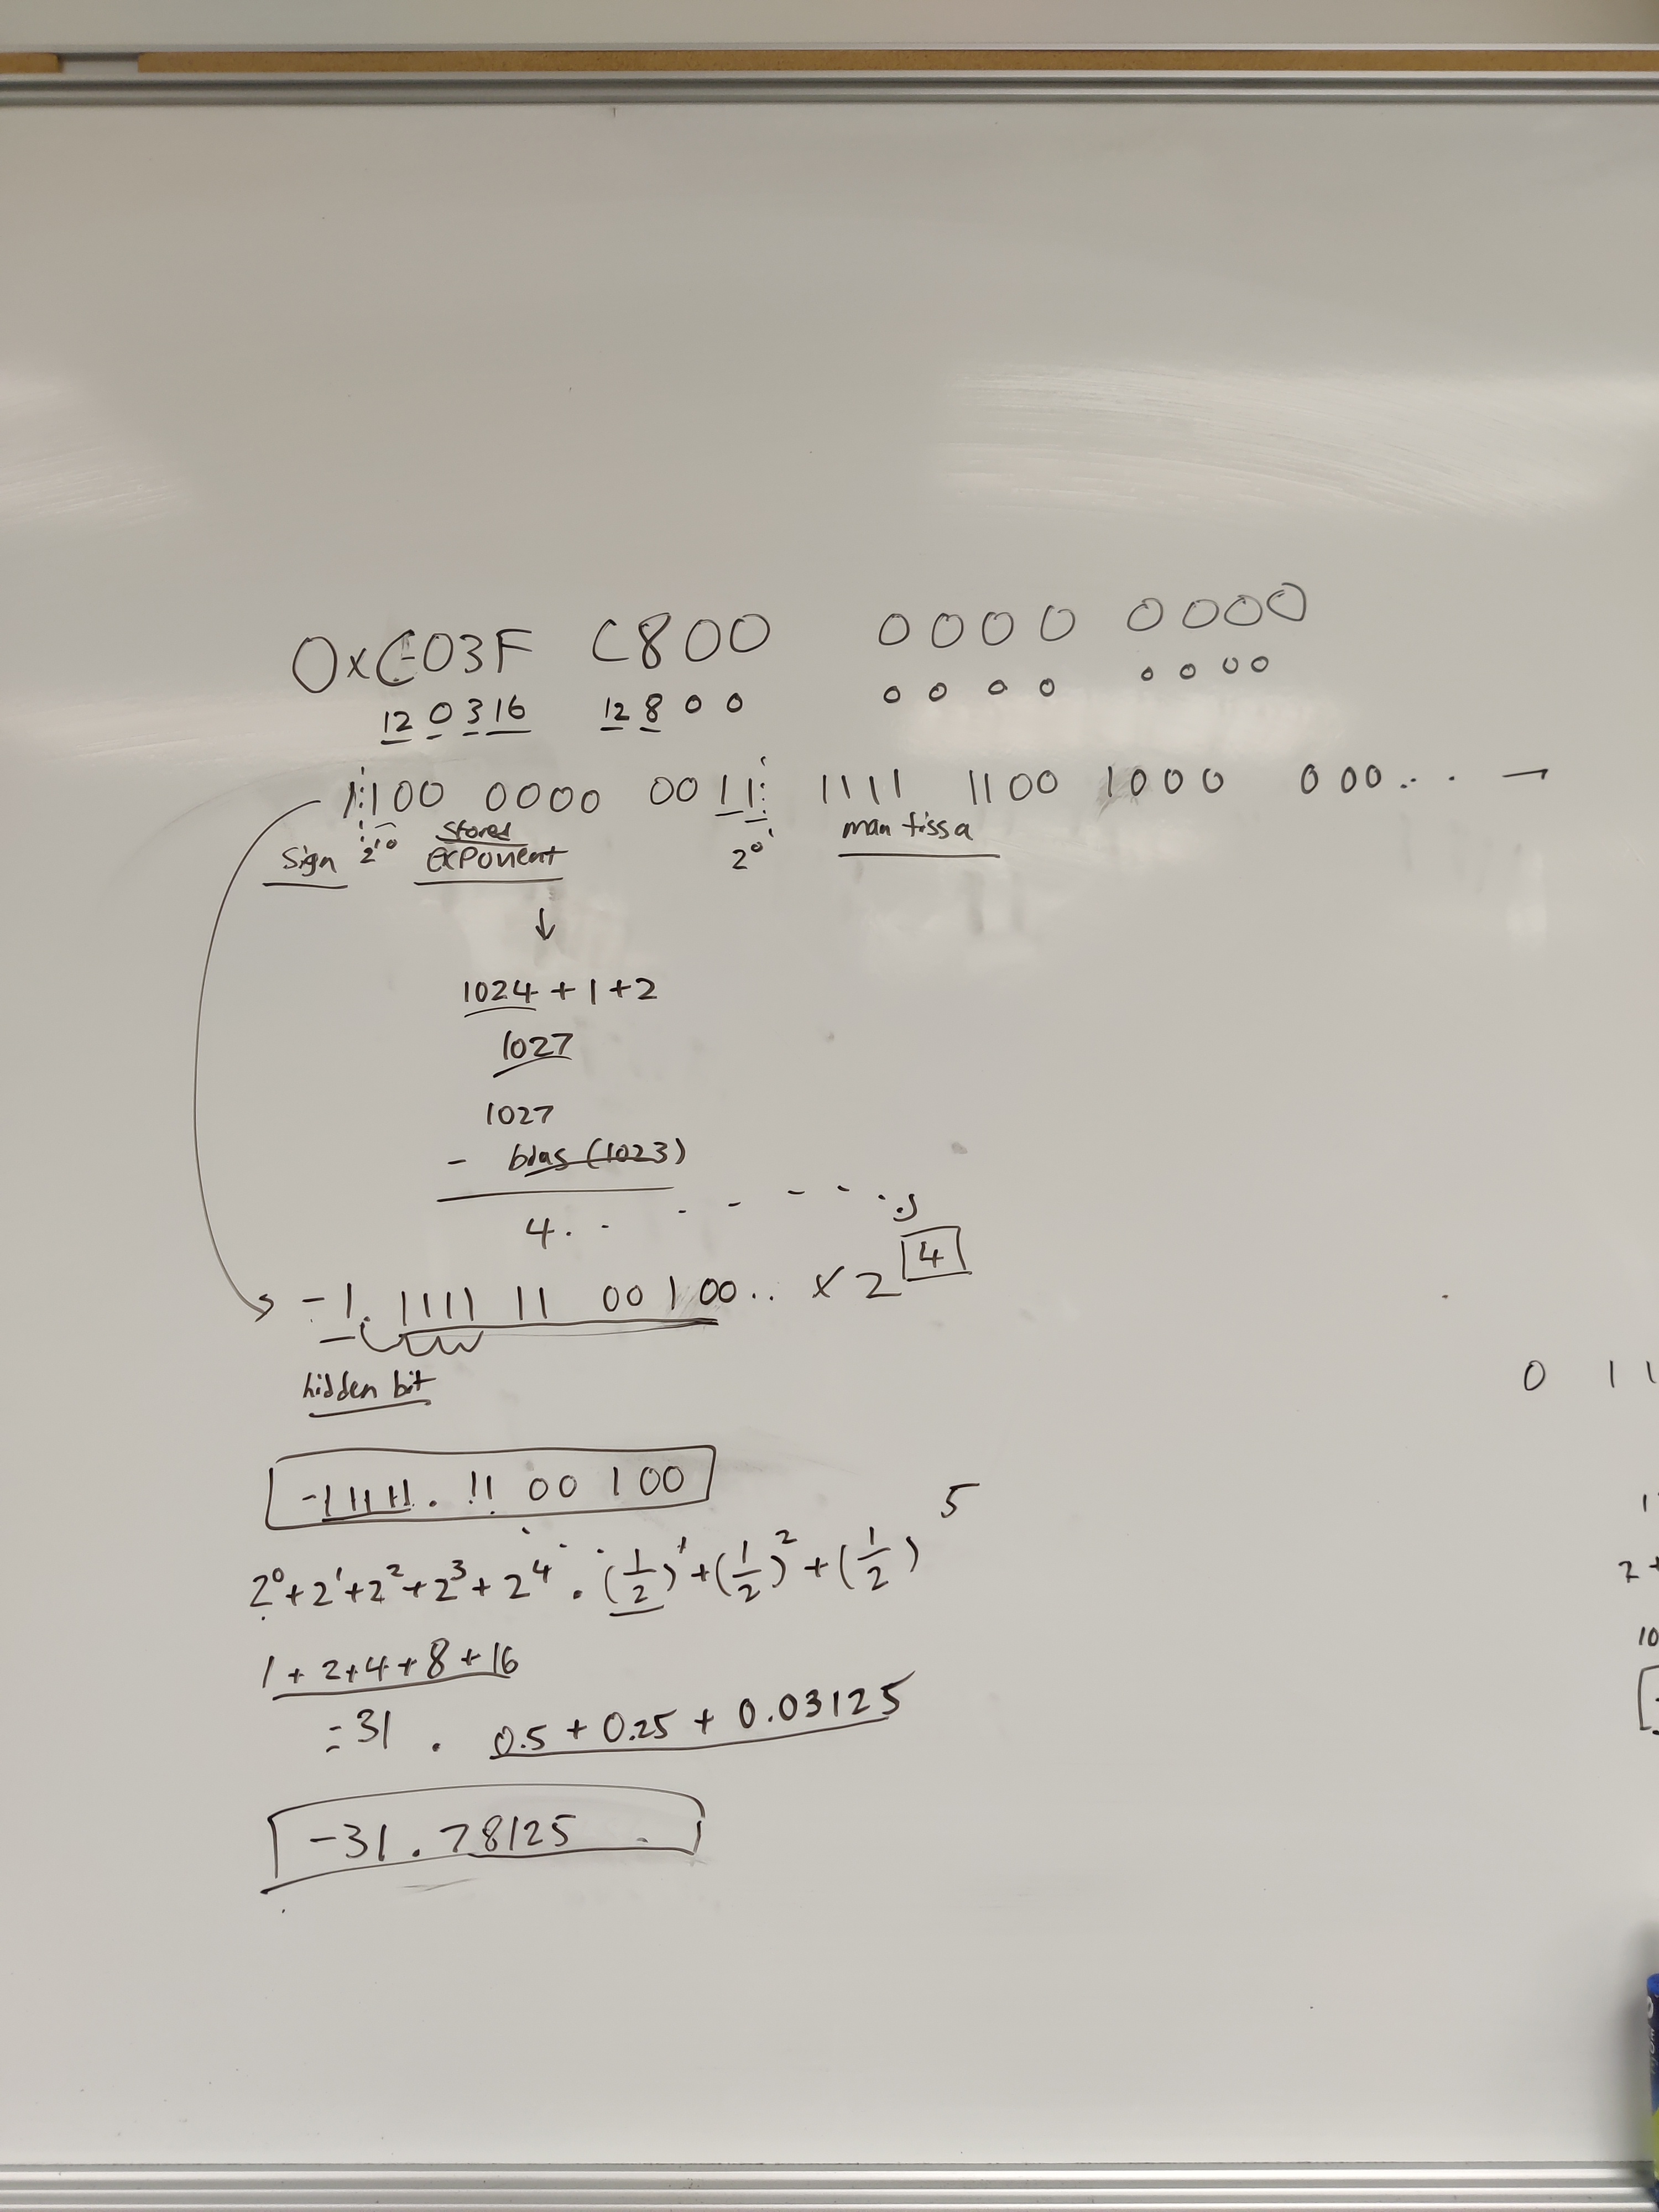 0xC03F C800 0000 0000
12 0 3 16 12 8 0 0 0 0 0 0 0 0 0 0
1 100 0000 0011 1111 1100 1000 000... →
sign 2^10 stored exponent 2^0 mantissa
↓
1024 + 1 + 2
1027
1027
- bias (1023)
4
-1. 1111 11 00 100.. x 2^4
hidden bit
-11111. 11 00 100
2^0 + 2^1 + 2^2 + 2^3 + 2^4 . (1/2)^1 + (1/2)^2 + (1/2)^5
1 + 2 + 4 + 8 + 16
= 31 . 0.5 + 0.25 + 0.03125
-31.78125
0 1 1
1
2 +
10